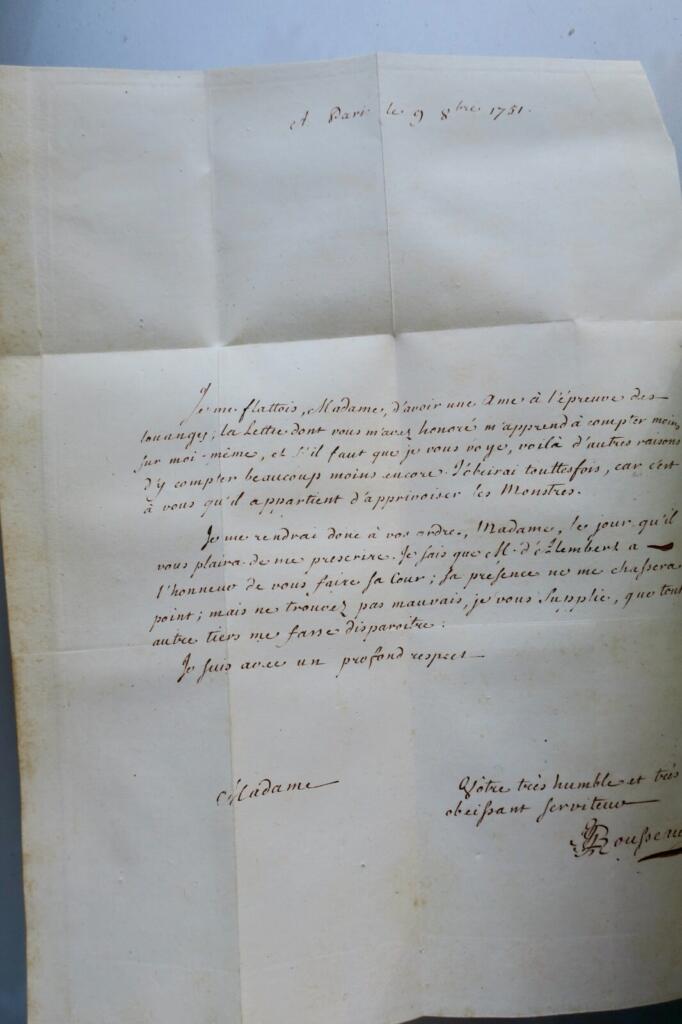 A Paris le 9 8bre 1751.
Je me flattois, Madame, d'avoir une Ame à l'épreuve des
louanges; la Lettre dont vous m'avez honoré m'apprend à compter moins
sur moi-même, et s'il faut que je vous voye, voilà d'autres raisons
d'y compter beaucoup moins encore. J'obeirai touttesfois, car c'est
à vous qu'il appartient d'apprivoiser les Monstres.
Je me rendrai donc à vos ordres, Madame, le jour qu'il
vous plaira de me prescrire. Je sais que M. d'Alembert a
l'honneur de vous faire sa Cour; sa présence ne me chassera
point; mais ne trouvez pas mauvais, je vous supplie, que tout
autre tiers me fasse disparoître.
Je suis avec un profond respect
Madame
Vôtre très humble et très
obeissant serviteur
JJRousseau